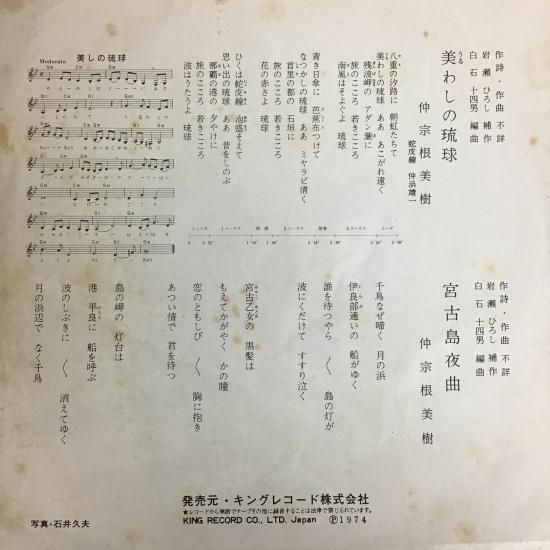 作詩・作曲 不詳
岩瀬 ひろし 補作
白石 十四男 編曲
美わしの琉球
うる
仲宗根美樹
蛇皮線 仲浜靖一
八重の汐路に 朝虹たちて
美わしの琉球 ああ あこがれ遠く
残波岬の アダン葉に
旅のこころ 若きこころ
南風はそよぐよ 琉球
青き日傘に 芭蕉布つけて
なつかしの琉球 ああ ミヤラビ清く
首里の都の 石垣に
旅のこころ 若きこころ
花の赤さよ 琉球
ひくは蛇皮線 泡盛そえて
思い出の琉球 ああ 昔をしのぶ
那覇の港の 夕やけに
旅のこころ 若きこころ
波はうたうよ 琉球
美しの琉球
Moderato
作詩・作曲 不詳
岩瀬 ひろし 補作
白石 十四男 編曲
宮古島夜曲
仲宗根美樹
千鳥なぜ啼く 月の浜
伊良部通いの 船がゆく
誰を待つやら 〱 島の灯が
波にくだけて すすり泣く
宮古乙女の 黒髪は
もえてかがやく かの瞳
恋のともしび 〱 胸に抱き
あつい情で 君を待つ
島の岬の 灯台は
港 平良に 船を呼ぶ
波のしぶきに 〱 消えてゆく
月の浜辺で なく千鳥
発売元・キングレコード株式会社
★レコードから無断でテープその他に録音することは法律で禁じられています。
KING RECORD CO., LTD. Japan ℗1974
写真・石井久夫